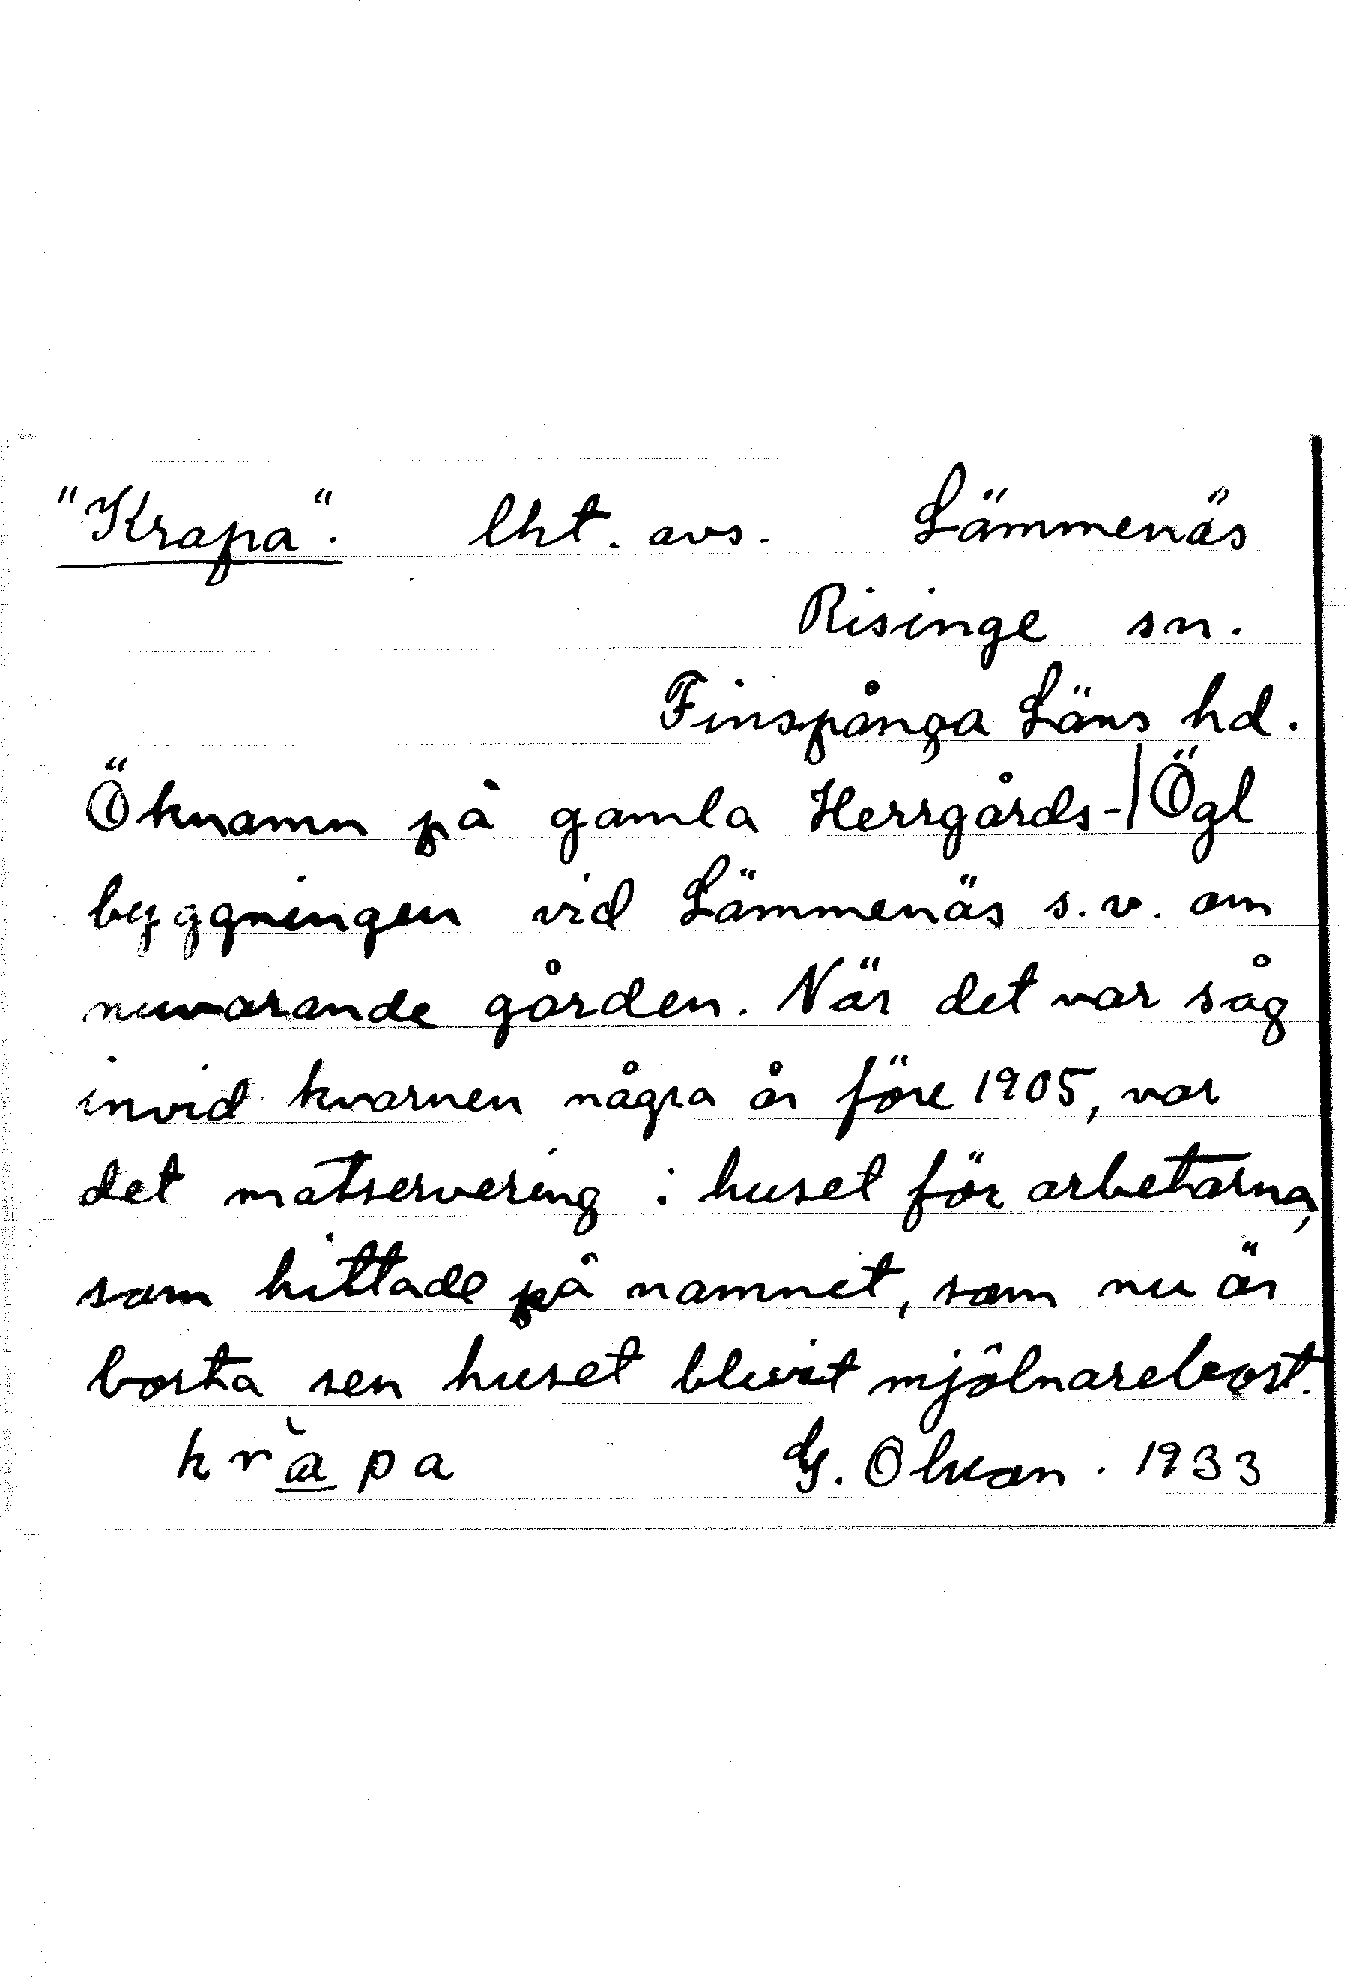 "Krapa". lht. avs. Lämmenäs
Risinge sn.
Finspånga Läns hd.
Öknamn på gamla Herrgårds-/Ögl
byggningen vid Lämmenäs s.v. om
nuvarande gården. När det var såg
invid kvarnen några år före 1905, var
det matservering i huset för arbetarna,
som hittade på namnet, som nu är
borta sen huset blivit mjölnarebost.
kràpa G. Olson. 1933